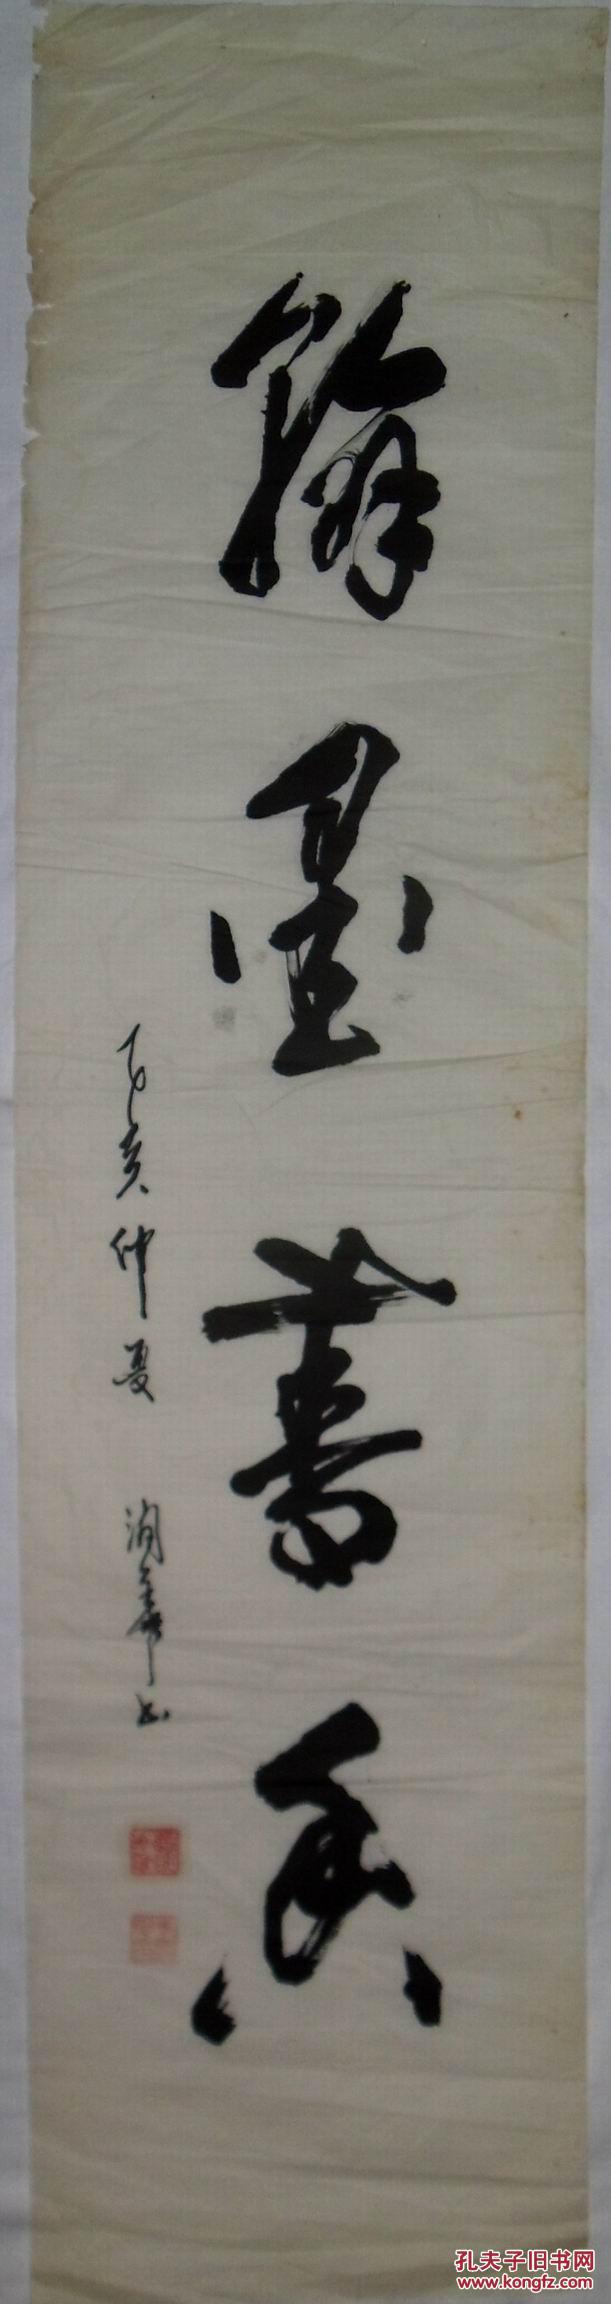 翰墨書香
乙亥仲夏
润華书
孔夫子旧书网
www.kongfz.com